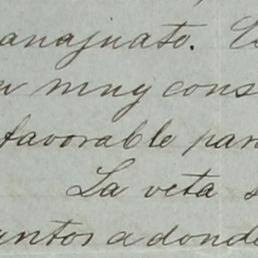 anajuato.
muy cons
favorable par
La veta s
antos adonde